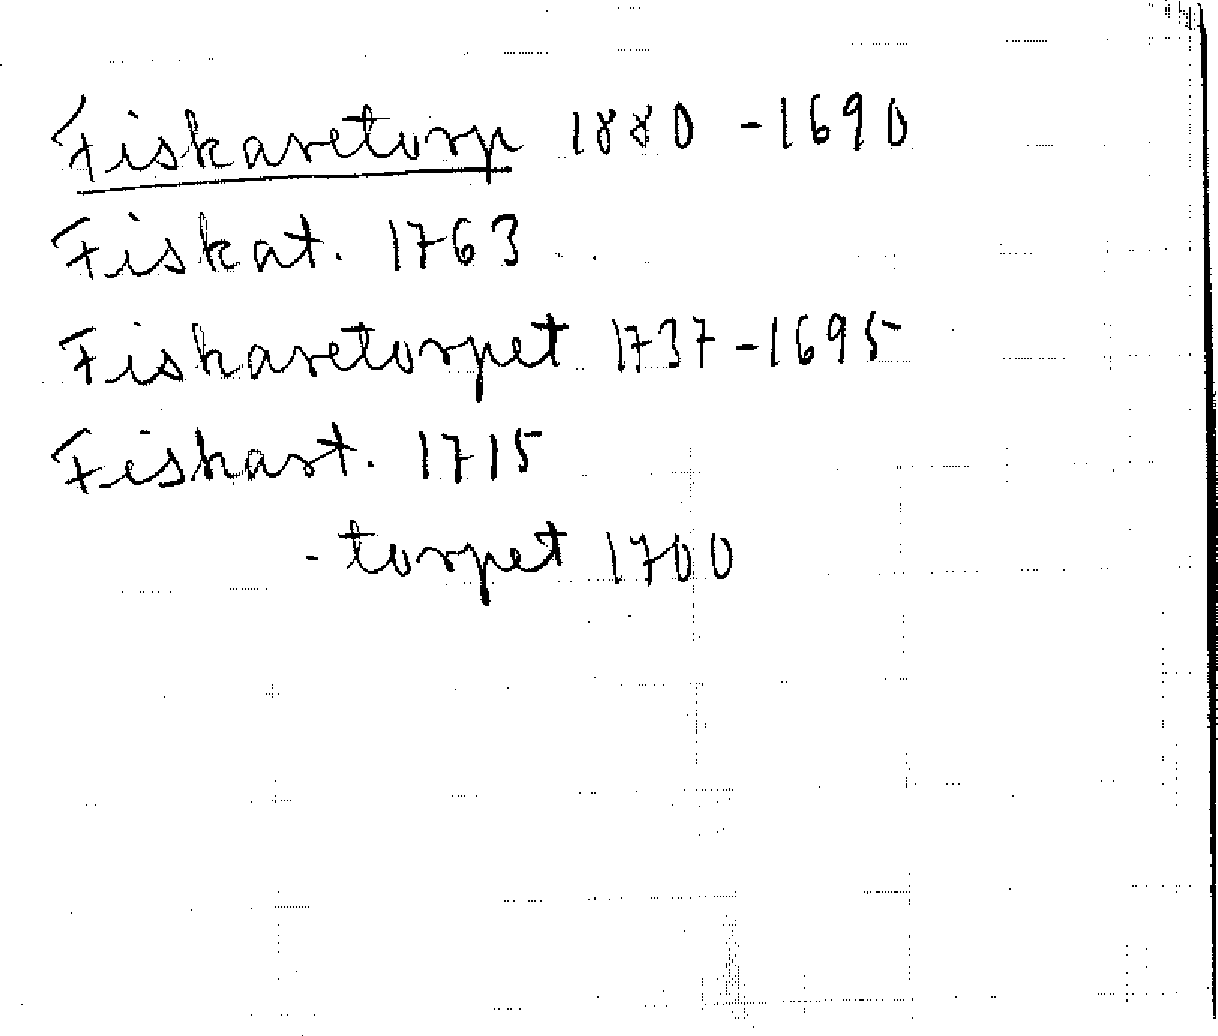 Fiskaretorp 1880 - 1690
Fiskat. 1763
Fiskaretorpet 1737 - 1695
Fiskart. 1715
- torpet 1700